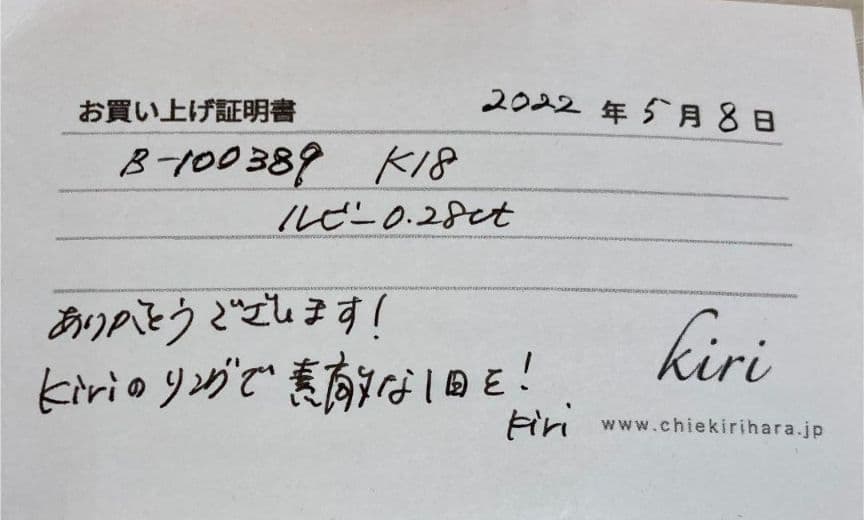 お買い上げ証明書 2022年5月8日
B-100389 K18
ルビー0.28ct
ありがとうございます!
kiriのリングで素敵な1日を!
kiri
kiri
www.chiekirihara.jp